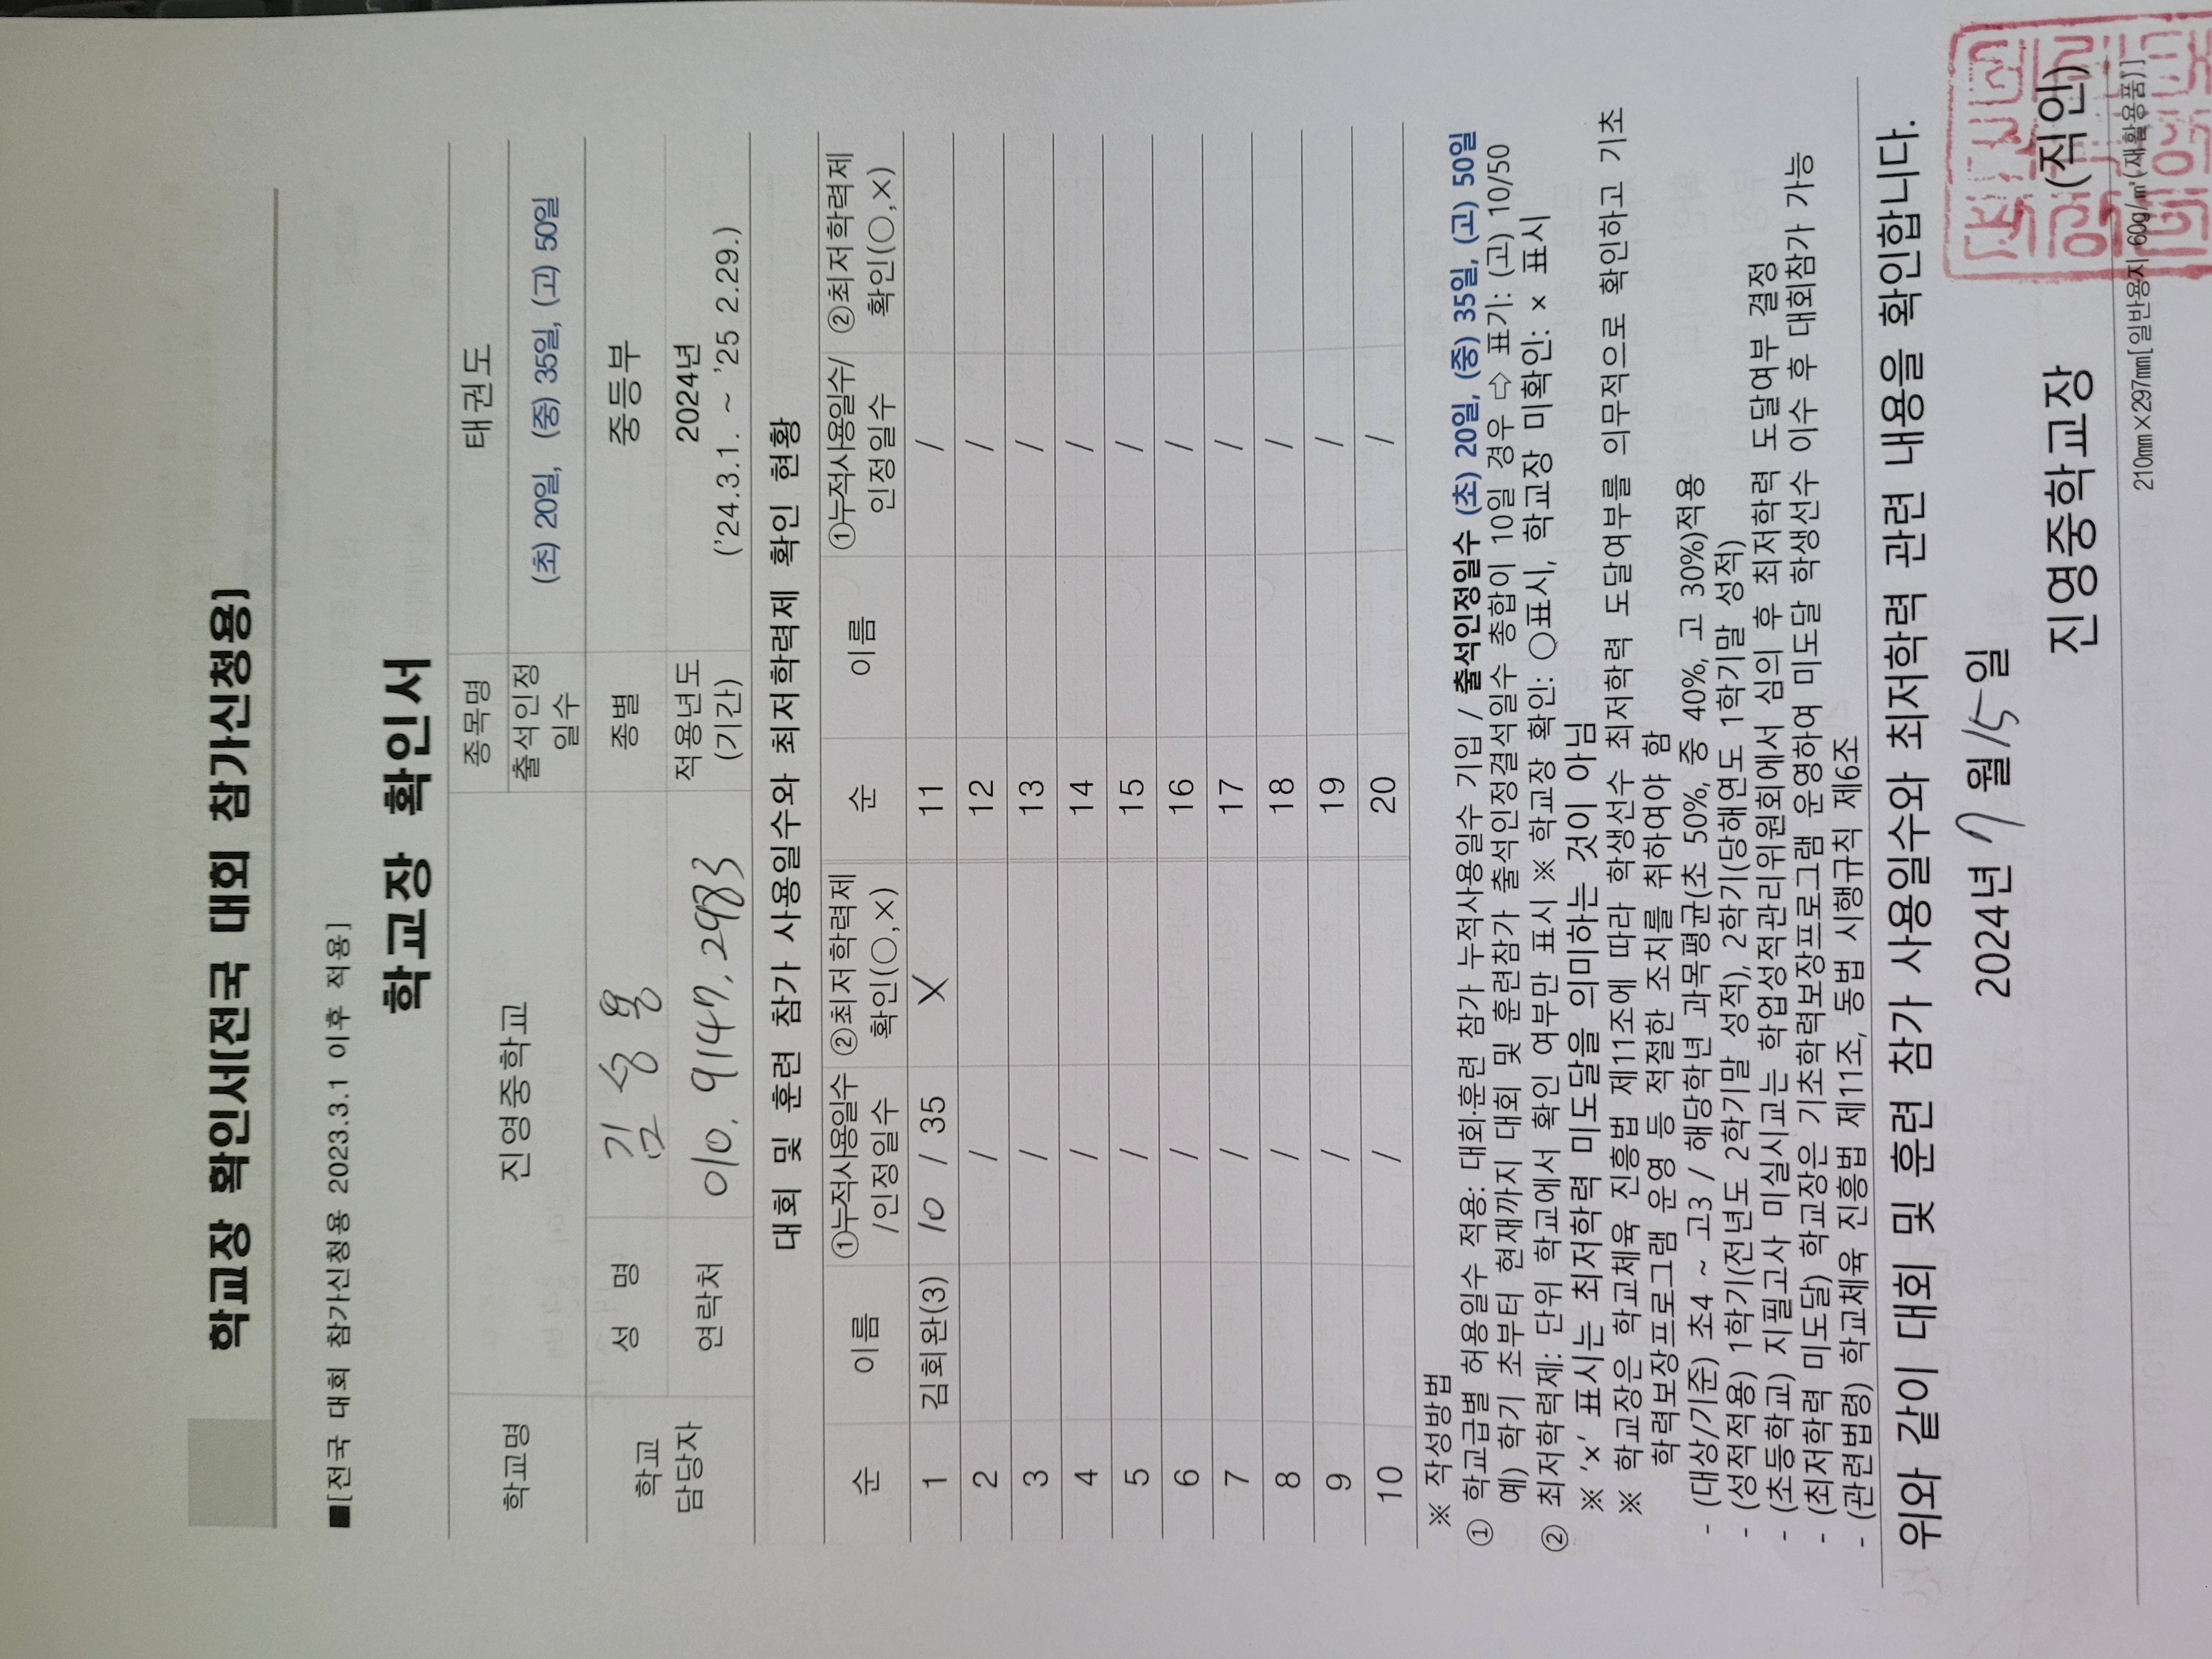 학교장 확인서[전국 대회 참가신청용]
■[전국 대회 참가신청용 2023.3.1 이후 적용]
학교장 확인서
학교명 진영중학교 종목명 태권도
출석인정일수 (초) 20일, (중) 35일, (고) 50일
학교 담당자 성 명 김승용 종별 중등부
연락처 010. 9147. 2983 적용년도 (기간) 2024년 ('24.3.1. ~ '25 2.29.)
대회 및 훈련 참가 사용일수와 최저학력제 확인 현황
순 이름 ①누적사용일수/인정일수 ②최저학력제 확인(○,×) 순 이름 ①누적사용일수/인정일수 ②최저학력제 확인(○,×)
1 김회완(3) 10 / 35 X 11 /
2 / 12 /
3 / 13 /
4 / 14 /
5 / 15 /
6 / 16 /
7 / 17 /
8 / 18 /
9 / 19 /
10 / 20 /
※ 작성방법
① 학교급별 허용일수 적용: 대회·훈련 참가 누적사용일수 기입 / 출석인정일수 (초) 20일, (중) 35일, (고) 50일
예) 학기 초부터 현재까지 대회 및 훈련참가 출석인정결석일수 총합이 10일 경우 ⇨ 표기: (고) 10/50
② 최저학력제: 단위 학교에서 확인 여부만 표시 ※ 학교장 확인: ○표시, 학교장 미확인: × 표시
※ '×' 표시는 최저학력 미도달을 의미하는 것이 아님
※ 학교장은 학교체육 진흥법 제11조에 따라 학생선수 최저학력 도달여부를 의무적으로 확인하고 기초
학력보장프로그램 운영 등 적절한 조치를 취하여야 함
- (대상/기준) 초4 ~ 고3 / 해당학년 과목평균(초 50%, 중 40%, 고 30%)적용
- (성적적용) 1학기(전년도 2학기말 성적), 2학기(당해연도 1학기말 성적)
- (초등학교) 지필고사 미실시교는 학업성적관리위원회에서 심의 후 최저학력 도달여부 결정
- (최저학력 미도달) 학교장은 기초학력보장프로그램 운영하여 미도달 학생선수 이수 후 대회참가 가능
- (관련법령) 학교체육 진흥법 제11조, 동법 시행규칙 제6조
위와 같이 대회 및 훈련 참가 사용일수와 최저학력 관련 내용을 확인합니다.
2024년 7월 15일
진영중학교장 (직인)
210㎜×297㎜[일반용지 60g/㎡(재활용품)]